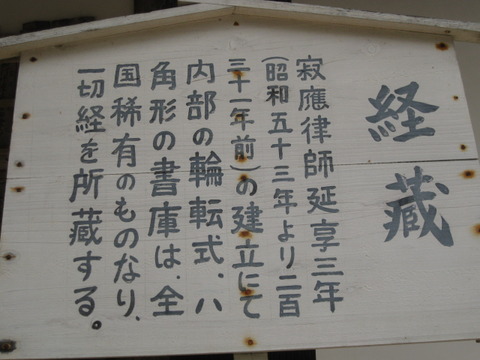 経蔵
寂應律師延享三年
（昭和五十三年より二百
三十一年前）の建立にて
内部の輪転式、八
角形の書庫は、全
国稀有のものなり、
一切経を所蔵する。